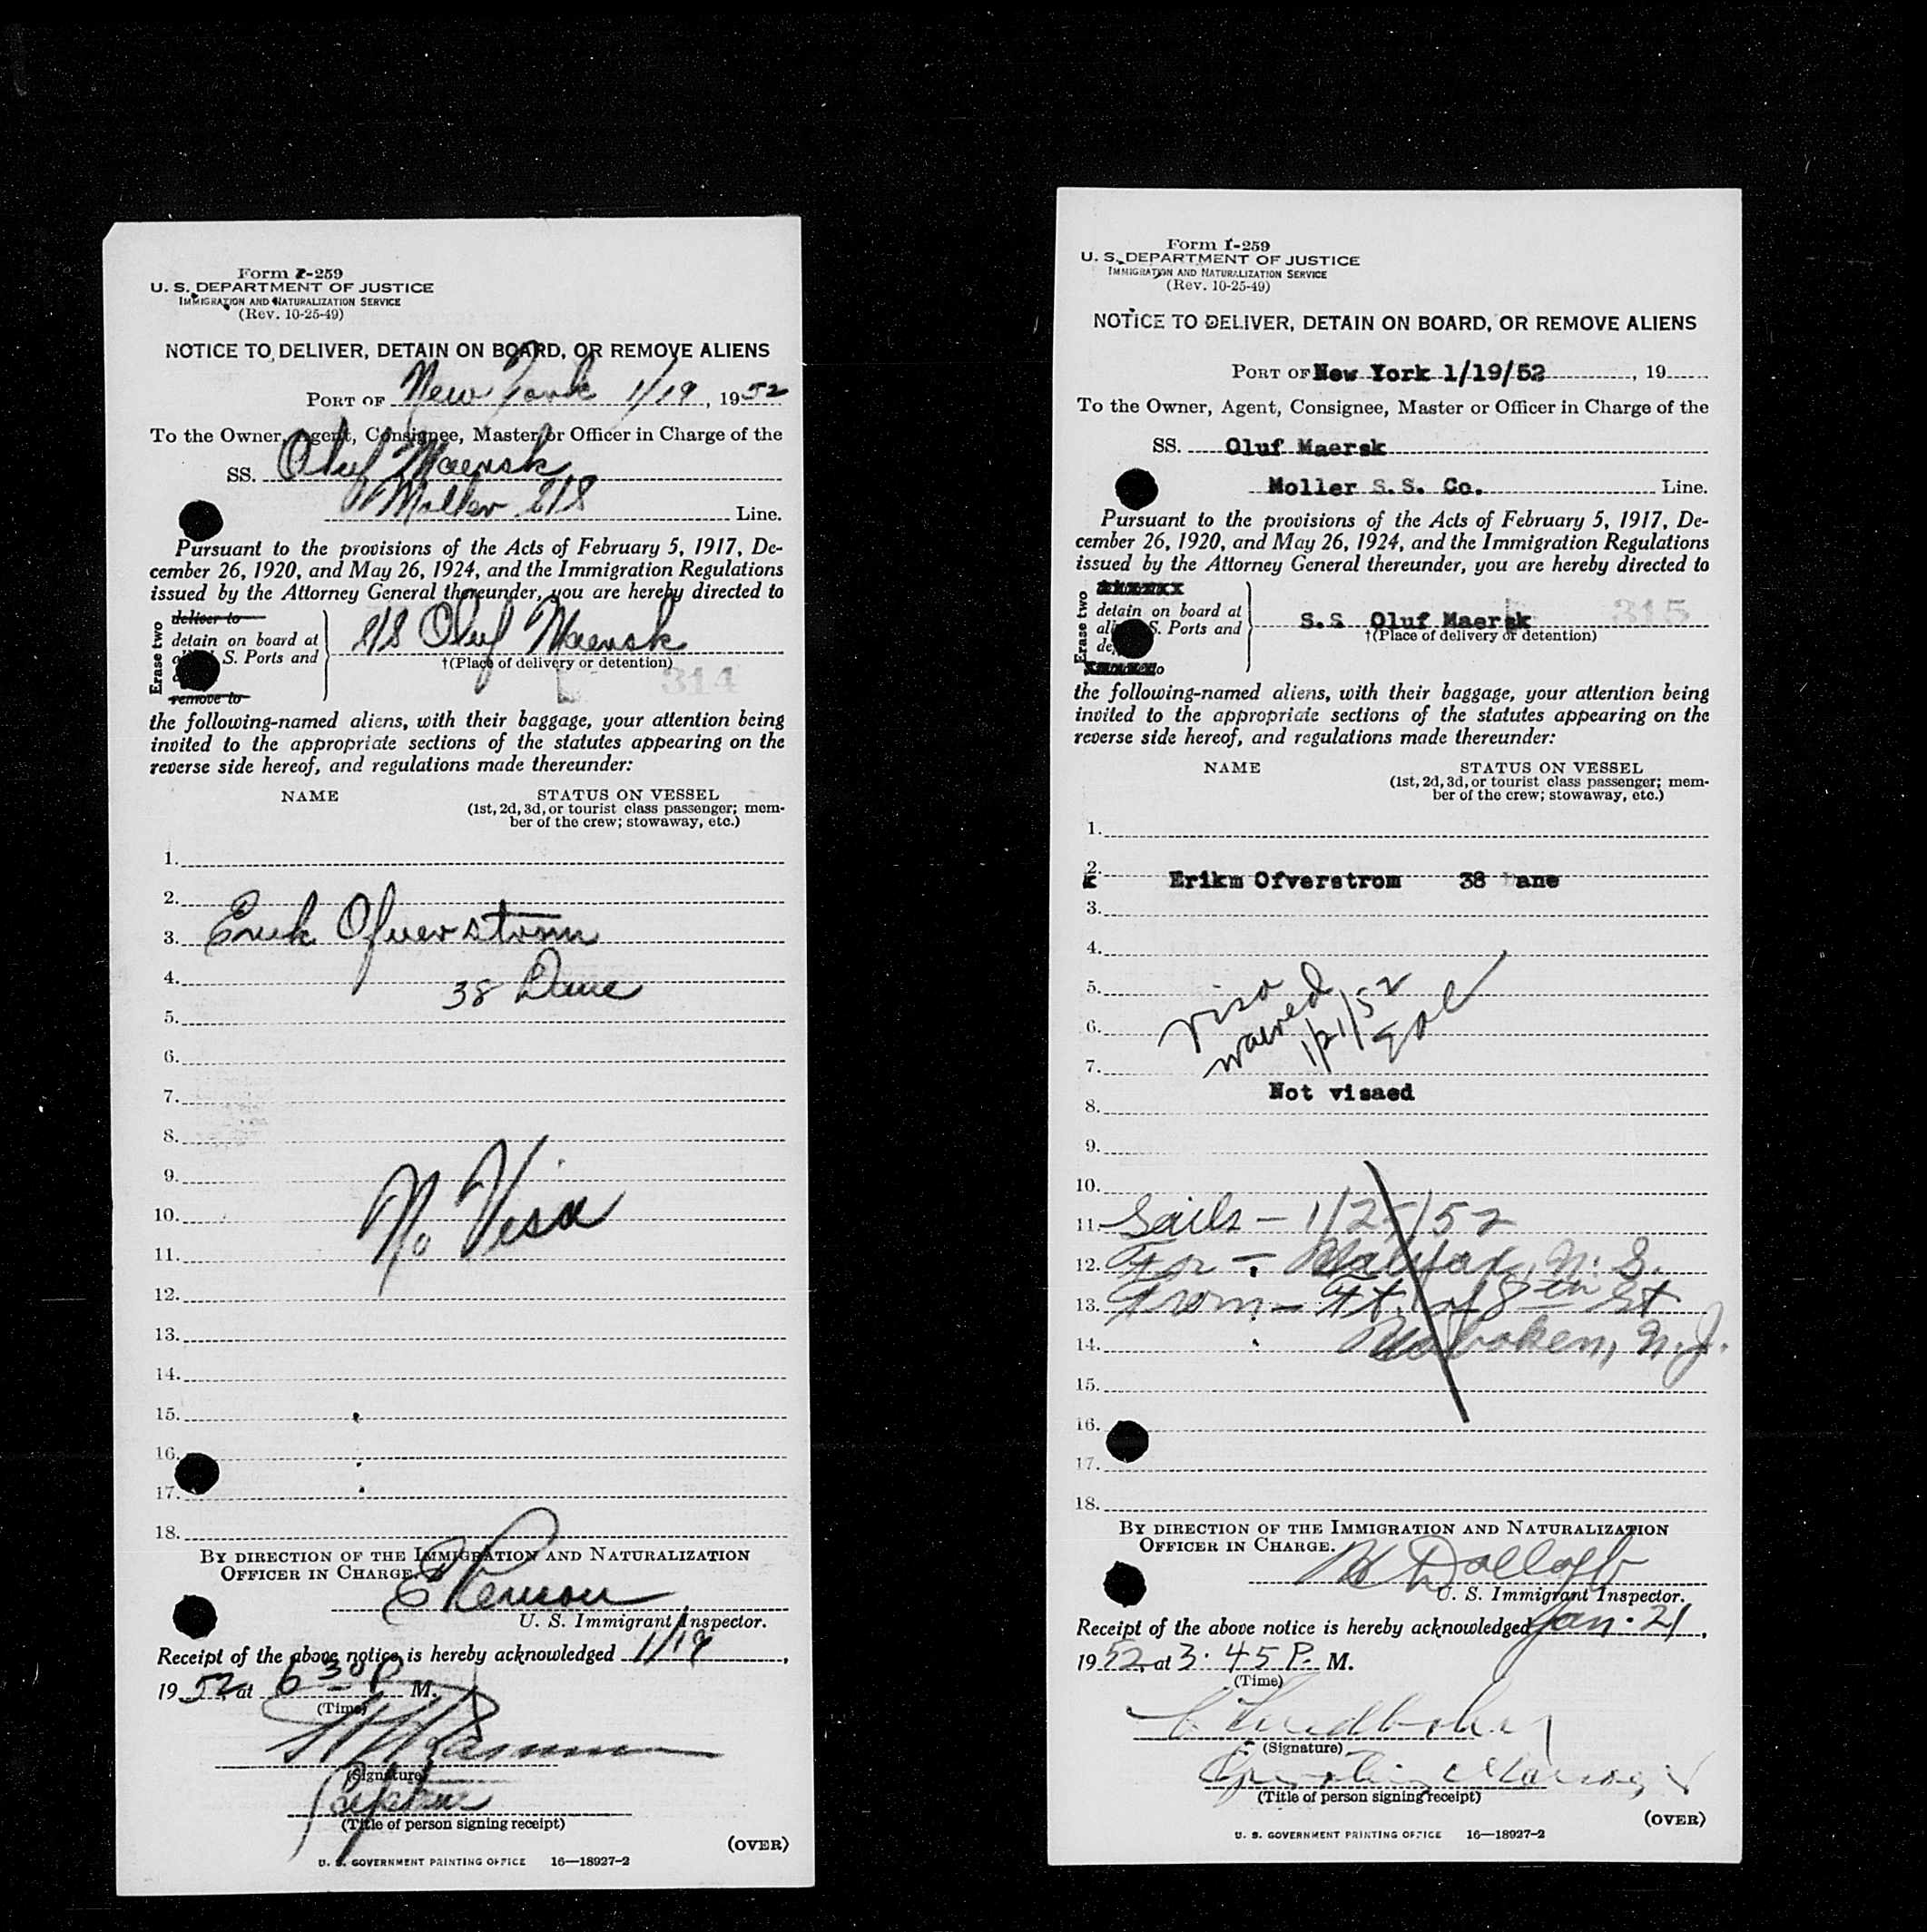 Form I-259
U. S. DEPARTMENT OF JUSTICE
IMMIGRATION AND NATURALIZATION SERVICE
(Rev. 10-25-49)
NOTICE TO DELIVER, DETAIN ON BOARD, OR REMOVE ALIENS
PORT OF New York 1/19, 1952
To the Owner, Agent, Consignee, Master or Officer in Charge of the
SS. Oluf Maersk
Moller S/S Line.
Pursuant to the provisions of the Acts of February 5, 1917, De-
cember 26, 1920, and May 26, 1924, and the Immigration Regulations
issued by the Attorney General thereunder, you are hereby directed to
Erase two
deliver to
detain on board at
S. Ports and
remove to
S/S Oluf Maersk
†(Place of delivery or detention)
314
the following-named aliens, with their baggage, your attention being
invited to the appropriate sections of the statutes appearing on the
reverse side hereof, and regulations made thereunder:
NAME
STATUS ON VESSEL
(1st, 2d, 3d, or tourist class passenger; mem-
ber of the crew; stowaway, etc.)
1.
2.
3. Erik Ofverstrom
4. 38 Dane
5.
6.
7.
8.
9.
10. No Visa
11.
12.
13.
14.
15.
16.
17.
18.
BY DIRECTION OF THE IMMIGRATION AND NATURALIZATION
OFFICER IN CHARGE.
U. S. Immigrant Inspector.
Receipt of the above notice is hereby acknowledged 1/19,
1952, at 6 30 P. M.
(Time)
(Signature)
Captain
(Title of person signing receipt)
(OVER)
U. S. GOVERNMENT PRINTING OFFICE 16—18927-2
Form I-259
U. S. DEPARTMENT OF JUSTICE
IMMIGRATION AND NATURALIZATION SERVICE
(Rev. 10-25-49)
NOTICE TO DELIVER, DETAIN ON BOARD, OR REMOVE ALIENS
PORT OF New York 1/19/52, 19
To the Owner, Agent, Consignee, Master or Officer in Charge of the
SS. Oluf Maersk
Moller S.S. Co. Line.
Pursuant to the provisions of the Acts of February 5, 1917, De-
cember 26, 1920, and May 26, 1924, and the Immigration Regulations
issued by the Attorney General thereunder, you are hereby directed to
Erase two
detain on board at
S. Ports and
S.S Oluf Maersk
†(Place of delivery or detention)
315
the following-named aliens, with their baggage, your attention being
invited to the appropriate sections of the statutes appearing on the
reverse side hereof, and regulations made thereunder:
NAME
STATUS ON VESSEL
(1st, 2d, 3d, or tourist class passenger; mem-
ber of the crew; stowaway, etc.)
1.
2. Erikm Ofverstrom 38 Dane
3.
4.
5. visa
6. waived
7. 1/21/52
Not visaed
8.
9.
10.
11. Sails - 1/25/52
12. For - Halifax, N. S.
13. From - Ft. of 8th St
14. Hoboken, N.J.
15.
16.
17.
18.
BY DIRECTION OF THE IMMIGRATION AND NATURALIZATION
OFFICER IN CHARGE.
U. S. Immigrant Inspector.
Receipt of the above notice is hereby acknowledged Jan. 21,
1952, at 3.45 P. M.
(Time)
(Signature)
Operating Manager
(Title of person signing receipt)
(OVER)
U. S. GOVERNMENT PRINTING OFFICE 16—18927-2